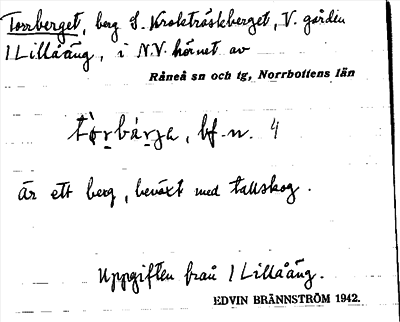 Torrberget, berg S. Kroktråskberget, V. gården
1 Lillåäng, i N.V. hörnet av
Råneå sn och tg, Norrbottens län
bf. n. 4
är ett berg, beväxt med tallskog.
Uppgiften från 1 Lillåäng.
EDVIN BRÄNNSTRÖM 1942.